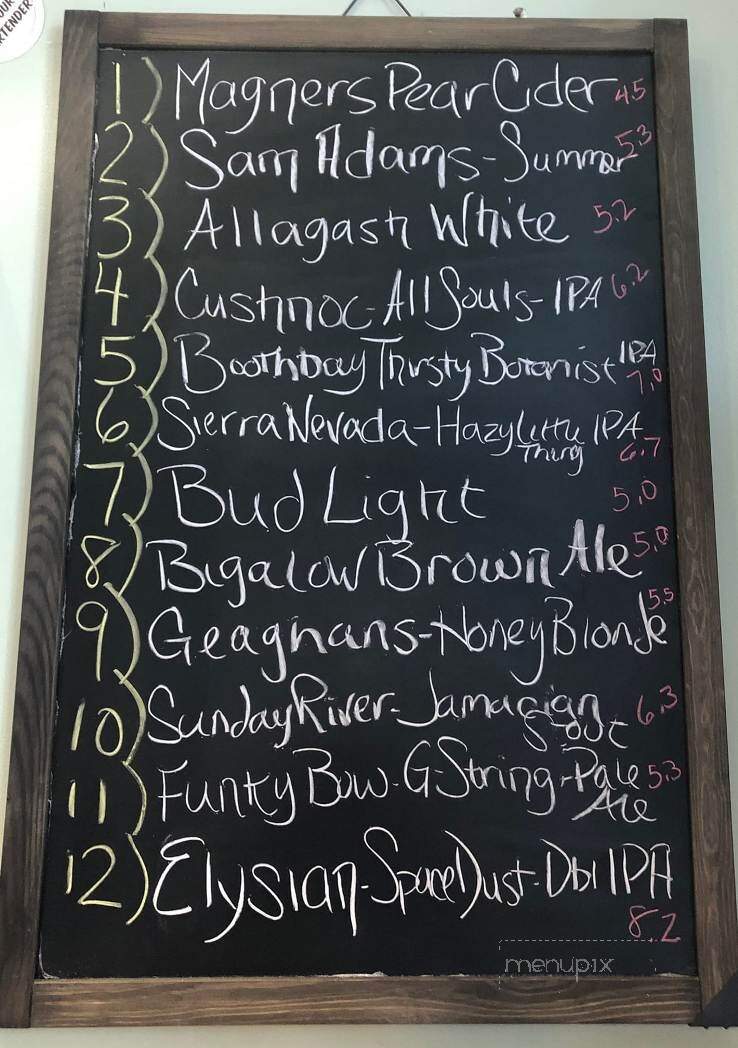 OUR
BARTENDER
1) Magners Pear Cider 4.5
2) Sam Adams-Summer 5.3
3) Allagash White 5.2
4) Cushnoc-All Souls-IPA 6.2
5) Boothbay Thirsty Botanist IPA
7.0
6) Sierra Nevada-Hazy Little IPA
Thing 6.7
7) Bud Light 5.0
8) Bigalow Brown Ale 5.0
9) Geaghans-Honey Blonde 5.5
10) Sunday River-Jamacian 6.3
Stout
11) Funky Bow-G-String-Pale 5.3
Ale
12) Elysian-Space Dust-Dbl IPA
8.2
menupix